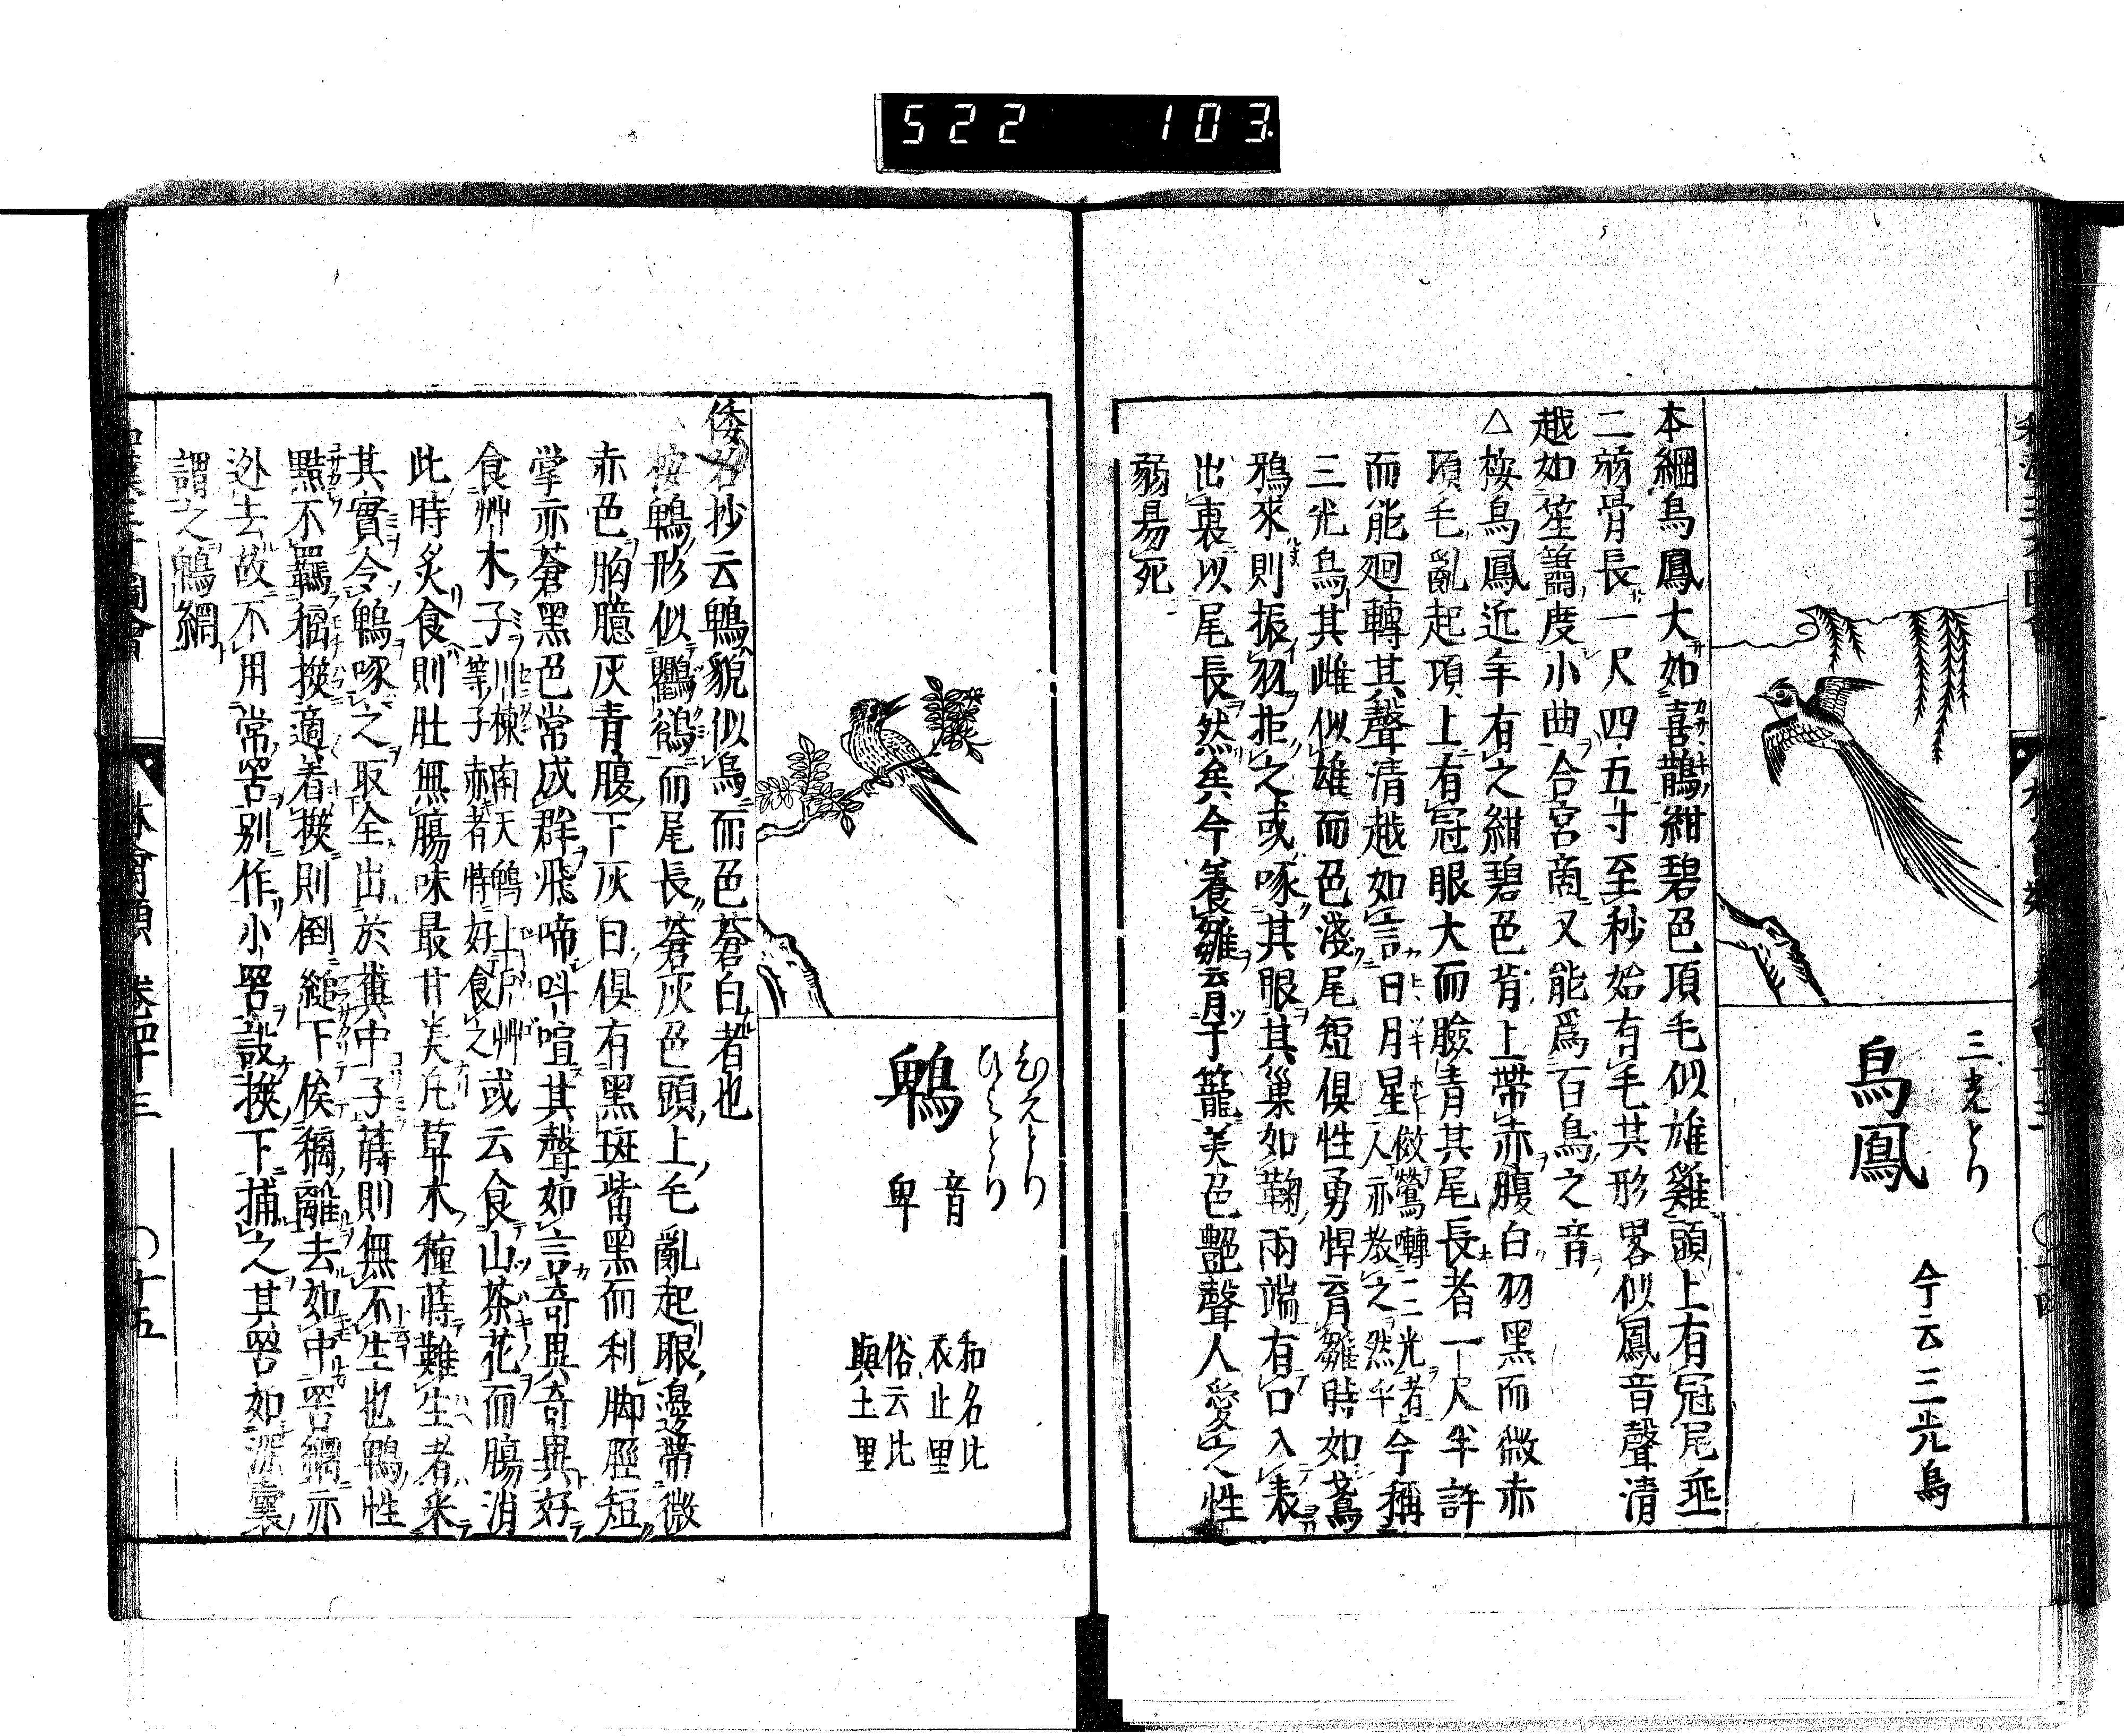 522 103
三光とり
烏鳳
今云三光鳥
本綱烏鳳大如喜鵲紺碧色項毛似雄雞頭上有冠尾垂
二弱骨長一尺四五寸至秒始有毛其形畧似鳳音聲清
越如笙簫度小曲合宮商又能爲百鳥之音
△按烏鳳近年有之紺碧色背上帶赤腹白羽黑而微赤
項毛亂起項上有冠眼大而臉青其尾長者一尺半許
而能廻轉其聲清越如言日月星人亦教之然乎今稱
倣鶯囀三光者
三光鳥其雌似雄而色淺尾短俱性勇悍育雛時如鳶
鴉來則振羽拒之或啄其眼其巢如鞠兩端有口入表
出裏以尾長然矣今養雛育于籠美色艷聲人愛之性
弱易死
ひえとり
ひよとり
鵯
音
卑
和名比
衣止里
俗云比
與土里
倭名抄云鵯貌似烏而色蒼白者也
按鵯形似鸜鵒而尾長蒼灰色頭上毛亂起眼邊帶微
赤色胸臆灰青腹下灰白俱有黑斑觜黑而利脚脛短
掌亦蒼黑色常成群飛啼呌喧其聲如言奇異奇異好
食艸木子川楝南天鵯上戸艸
等子赤者特好食之或云食山茶花而腸消
此時炙食則肚無腸味最甘美凡草木種蒔難生者釆
其實令鵯啄之取全出於糞中子蒔則無不生也鵯性
點不羈稲擌適着擌則倒縋下俟稲離去如中罟網亦
迯去故不用常罟別作小罟設擌下捕之其罟如深囊
謂之鵯網
林禽類 卷四十三
〇十五